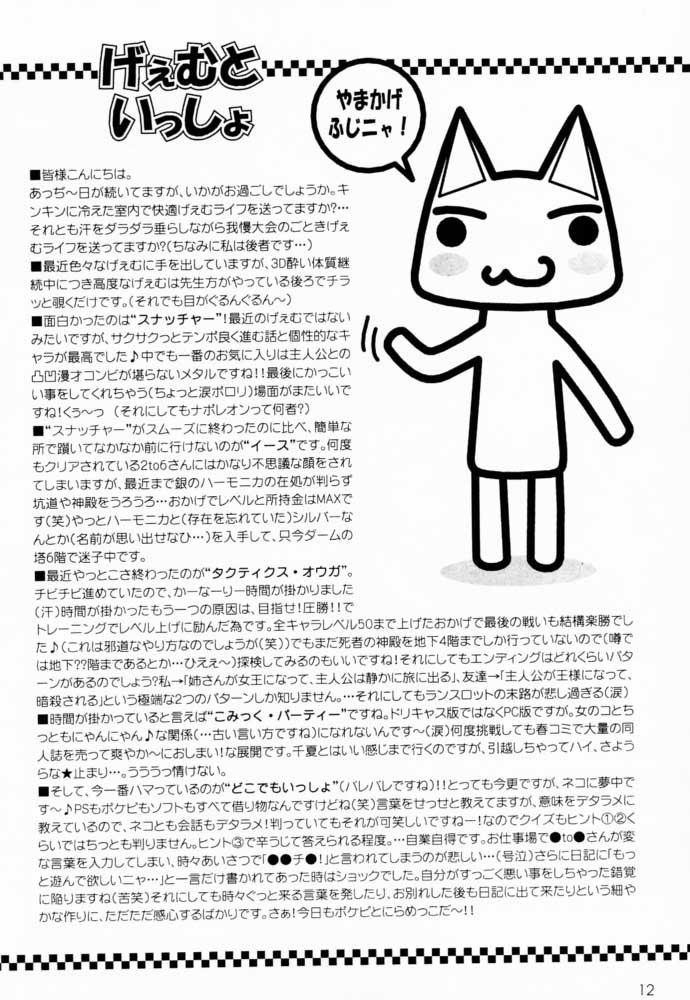 げぇむと
いっしょ
やまかげ
ふじニャ！
■皆様こんにちは。
あっぢ～日が続いてますが、いかがお過ごしでしょうか。キ
ンキンに冷えた室内で快適げぇむライフを送ってますか?…
それとも汗をダラダラ垂らしながら我慢大会のごときげぇ
むライフを送ってますか?(ちなみに私は後者です…)
■最近色々なげぇむに手を出していますが、3D酔い体質継
続中につき高度なげぇむは先生方がやっている後ろでチラ
ッと覗くだけです。(それでも目がぐるんぐるん～)
■面白かったのは“スナッチャー”!最近のげぇむではない
みたいですが、サクサクっとテンポ良く進む話と個性的なキ
ャラが最高でした♪中でも一番のお気に入りは主人公との
凸凹漫才コンビが堪らないメタルですね!!最後にかっこい
い事をしてくれちゃう(ちょっと涙ポロリ)場面がまたいいで
すね!くぅ～っ　(それにしてもナポレオンって何者?)
■“スナッチャー”がスムーズに終わったのに比べ、簡単な
所で躓いてなかなか前に行けないのが“イース”です。何度
もクリアされている2to6さんにはかなり不思議な顔をされ
てしまいますが、最近まで銀のハーモニカの在処が判らず
坑道や神殿をうろうろ…おかげでレベルと所持金はMAXで
す(笑)やっとハーモニカと(存在を忘れていた)シルバーなん
とか(名前が思い出せなひ…)を入手して、只今ダームの
塔6階で迷子中です。
■最近やっとこさ終わったのが“タクティクス・オウガ”。
チビチビ進めていたので、かーなーりー時間が掛かりました
(汗)時間が掛かったもう一つの原因は、目指せ!圧勝!!で
トレーニングでレベル上げに励んだ為です。全キャラレベル50まで上げたおかげで最後の戦いも結構楽勝でし
た♪(これは邪道なやり方なのでしょうが(笑))でもまだ死者の神殿を地下4階までしか行っていないので(噂で
は地下??階まであるとか…ひえぇ～)探検してみるのもいいですね!それにしてもエンディングはどれくらいパタ
ーンがあるのでしょう?私→「姉さんが女王になって、主人公は静かに旅に出る」、友達→「主人公が王様になって、
暗殺される」という極端な2つのパターンしか知りません。…それにしてもランスロットの末路が悲し過ぎる(涙)
■時間が掛かっていると言えば“こみっく・パーティー”ですね。ドリキャス版ではなくPC版ですが。女のコとち
っともにゃんにゃん♪な関係(…古い言い方ですね)になれないんです～(涙)何度挑戦しても春コミで大量の同
人誌を売って爽やか～におしまい!な展開です。千夏とはいい感じまで行くのですが、引越しちゃってハイ、さような
ら★止まり…。うううっ情けない。
■そして、今一番ハマっているのが“どこでもいっしょ”(バレバレですね)!!とっても今更ですが、ネコに夢中で
す～♪PSもポケピもソフトもすべて借り物なんですけどね(笑)言葉をせっせと教えてますが、意味をデタラメに
教えているので、ネコとも会話もデタラメ!判っていてもそれが可笑しいですねー!なのでクイズもヒント①②く
らいではちっとも判りません。ヒント③で辛うじて答えられる程度。…自業自得です。お仕事場で●to●さんが変
な言葉を入力してしまい、時々あいさつで「●●チ●!」と言われてしまうのが悲しい…(号泣)さらに日記に「もっ
と遊んで欲しいニャ…」と一言だけ書かれてあった時はショックでした。自分がすっごく悪い事をしちゃった錯覚
に陥りますね(苦笑)それにしても時々ぐっと来る言葉を発したり、お別れした後も日記に出て来たりという細や
かな作りに、ただただ感心するばかりです。さぁ!今日もポケピとにらめっこだ～!!
12